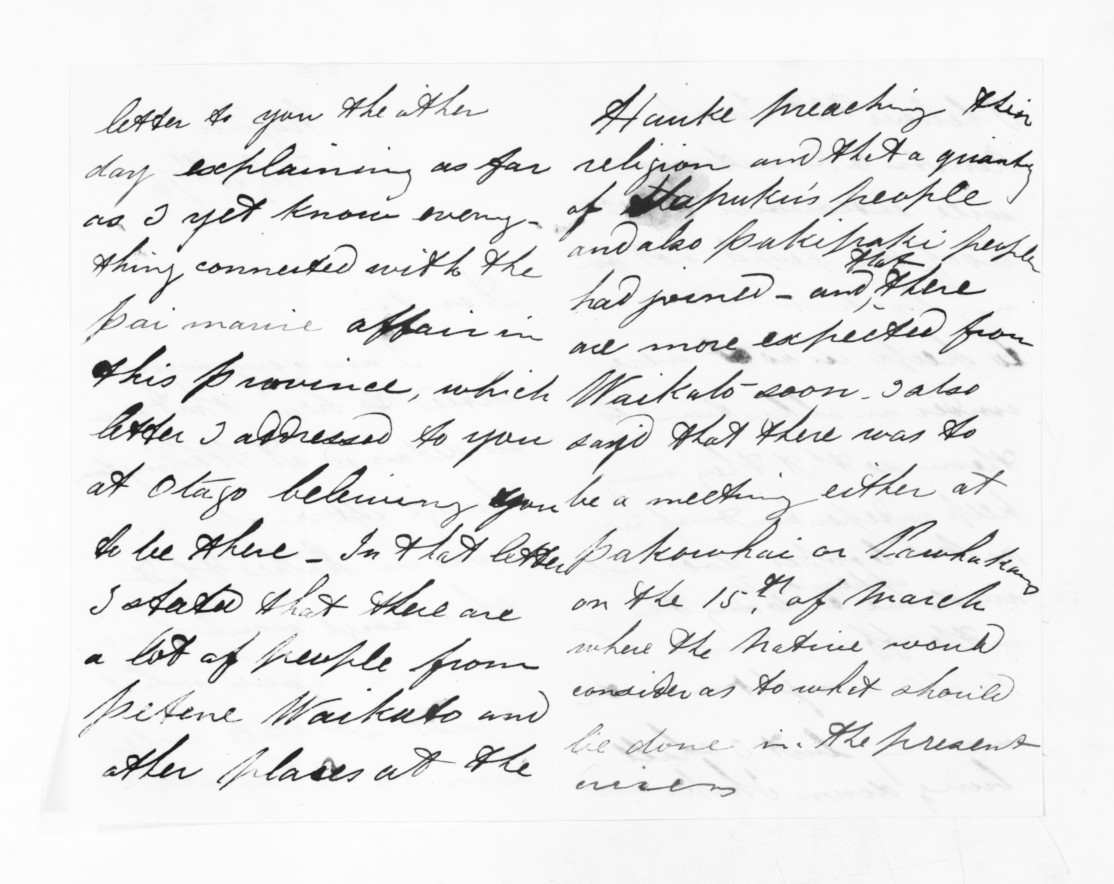 letter to you the other
day explaining as far
as I yet know every-
thing connected with the
pai marire affair in
this province, which
letter I addressed to you
at Otago beleiving you
to be there - In that letter
I stated that there are
a lot of people from
petene Waikato and
other places at the
Hauke preaching their
religion and that a quantity
of Hapuku's people
and also pakipaki people
had joined - and that there
are more expected from
Waikato soon. I also
said that there was to
be a meeting either at
pakowhai or
on the 15th of March
where the Native would
consider as to what should
be done in the present
crisis